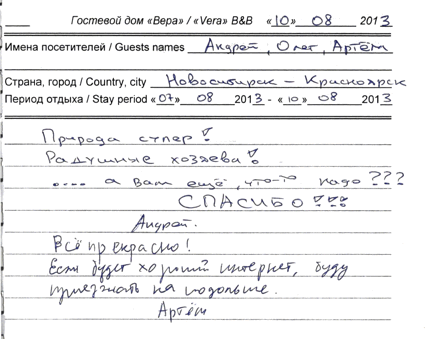 Гостевой дом «Вера» / «Vera» B&B «10» 08 2013
Имена посетителей / Guests names Андрей, Олег, Артём
Страна, город / Country, city Новосибирск – Красноярск
Период отдыха / Stay period «07» 08 2013 - «10» 08 2013
Природа супер!
Радушные хозяева!
.... а вам ещё, что-то надо???
СПАСИБО!!!
Андрей.
Всё прекрасно!
Если будет хороший интернет, буду
приезжать на подольше.
Артём